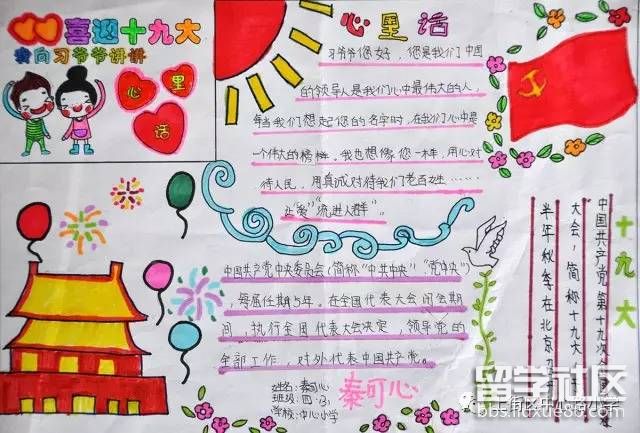 喜迎十九大
我向习爷爷讲讲
心里
话
心里话
习爷爷您好，您是我们中国
的领导人是我们心中最伟大的人，
每当我们想起您的名字时，在我们心中是
一个伟大的榜样。我也想像您一样，用心对
待人民，用真诚对待我们老百姓……
让"爱""流进人群"。
中国共产党中央委员会（简称"中共中央""党中央"）
，每届任期5年。在全国代表大会闭会期
间，执行全国代表大会决定，领导党的
全部工作，对外代表中国共产党。
姓名：秦可心
班级：四.3
学校：中心小学
秦可心
十九大
中国共产党第十九次全
大会，简称十九大
半年秋季在北京
留学社区
bbs.liuxue86.com